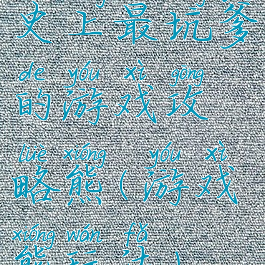 史上最坑爹
de yóu xì gōng
的游戏攻
lüè xióng yóu xì
略熊(游戏
xióng wán fǎ
熊玩法)